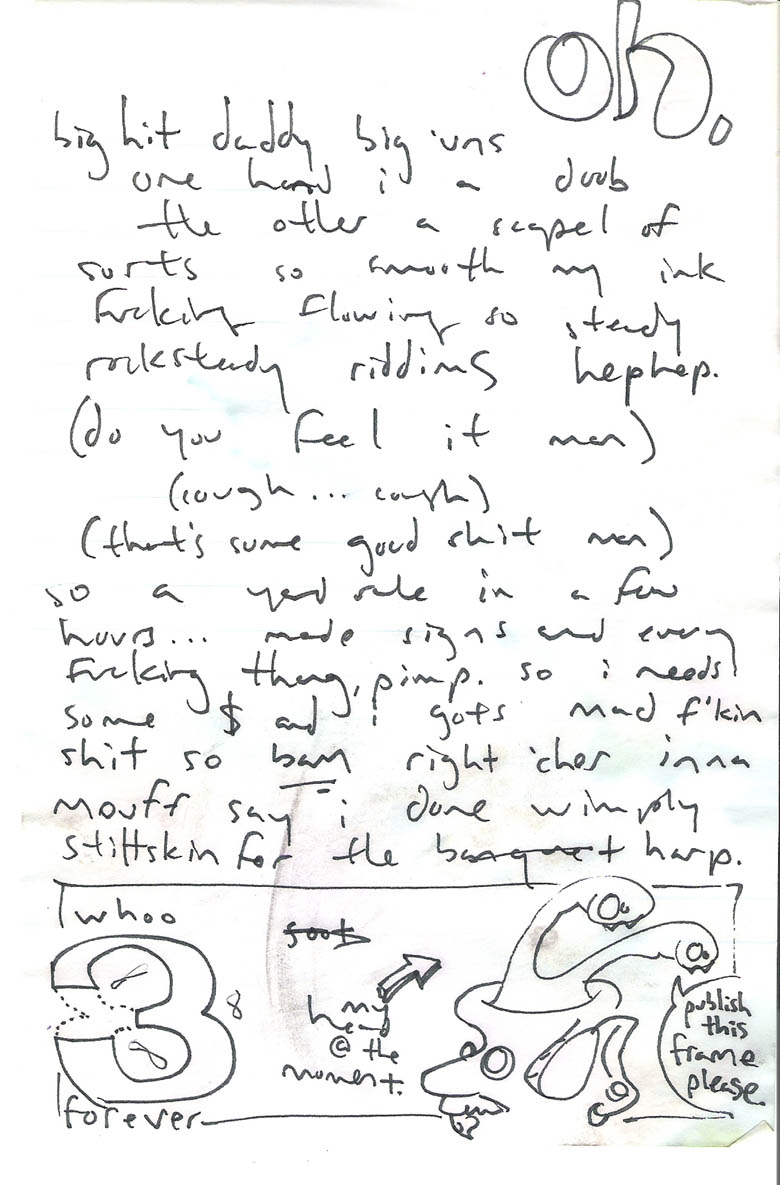 oh.
big hit daddy big 'uns
one hand i a doob
the other a scapel of
sorts so smooth my ink
fucking flowing so steady
rocksteady riddims hephep.
(do you feel it man)
(cough... cough)
(that's some good shit man)
so a yard sale in a few
hours... made signs and every
fucking thang, pimp. so i needs
some $ and i gots mad f'kin
shit so bam right 'cher inna
mouff say i done wimply
stiltskin for the banquet harp.
whoo
3
8
forever
my
head
@ the
moment.
publish
this
frame
please.